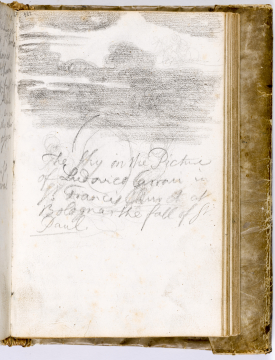 The sky in the Picture
of Ludovico Carrati in
St. Francis Church at
Bologna the fall of St
Paul